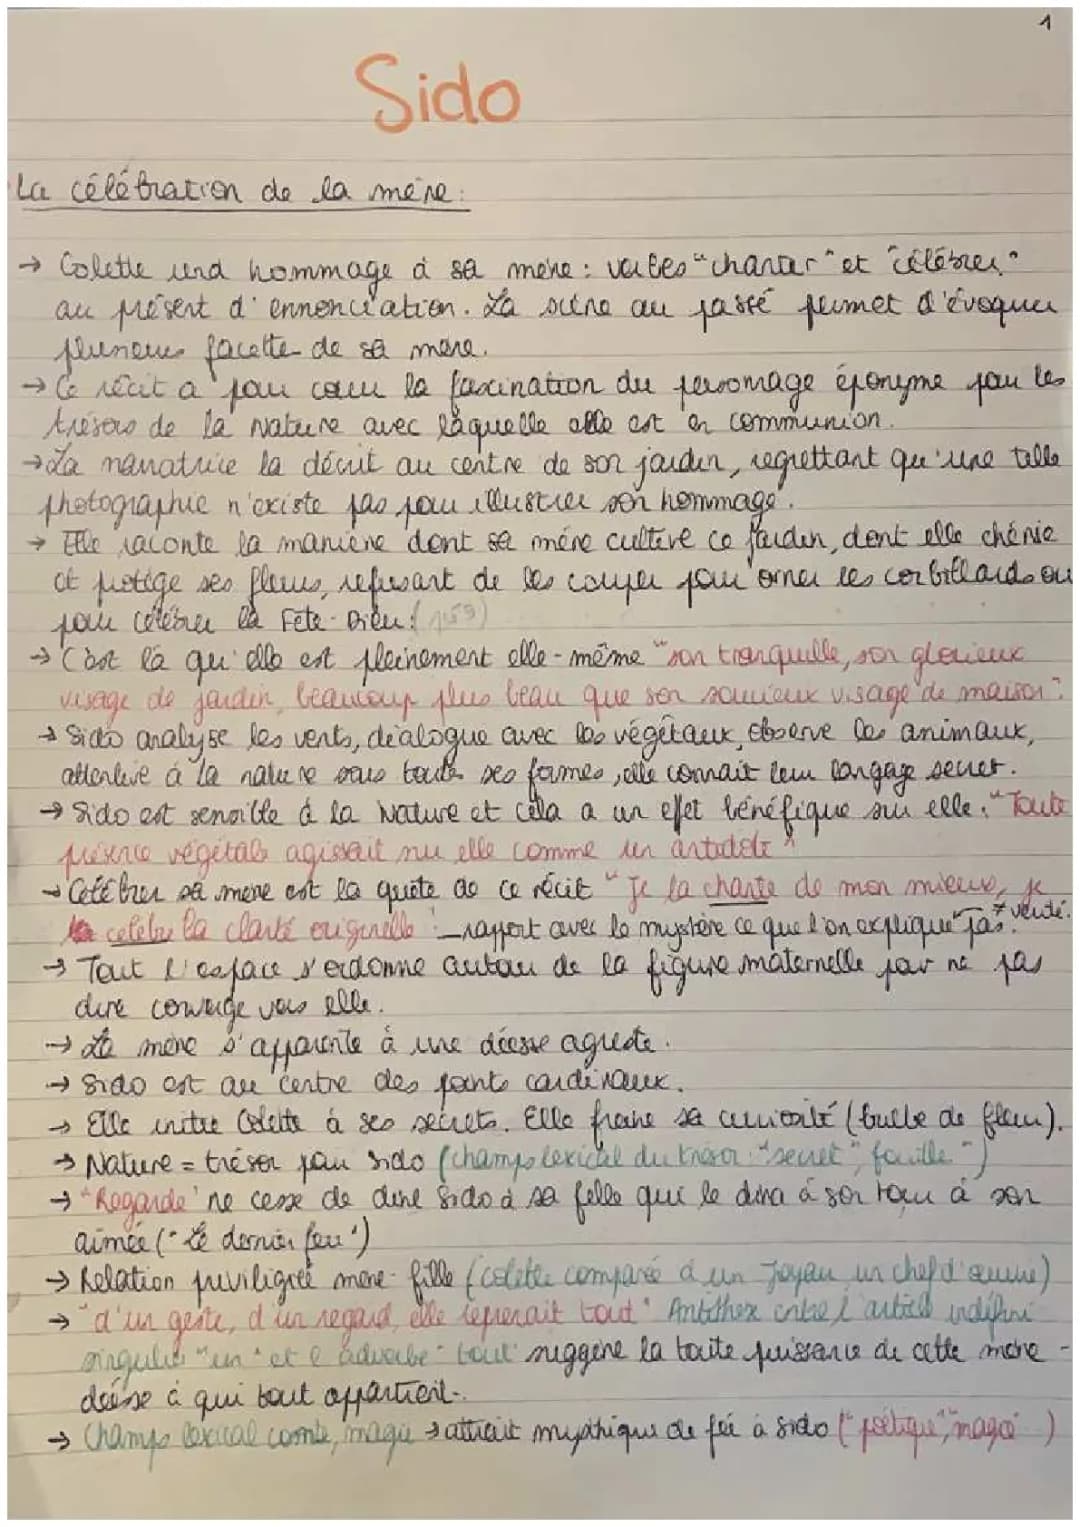 1
Sido
La célébration de la mère:
→ Colette rend hommage à sa mère : verbes "chanter" et "célébrer"
au présent d'ennonciation. La scène au passé permet d'évoquer
plusieurs facette de sa mère.
→ Ce récit a pour cœur la fascination du personnage éponyme pour les
trésors de la Nature avec laquelle elle est en communion.
→ La narratrice la décrit au centre de son jardin, regrettant qu'une telle
photographie n'existe pas pour illustrer son hommage.
→ Elle raconte la manière dont sa mère cultive ce jardin, dont elle chérie
et protège ses fleurs, refusant de les couper pour orner les corbillards ou
pour célébrer la Fête-Dieu.
→ C'est là qu'elle est pleinement elle-même "son tranquille, son glorieux
visage de jardin, beaucoup plus beau que son soucieux visage de maison".
→ Sido analyse les vents, dialogue avec les végétaux, observe les animaux,
attentive à la nature sous toutes ses formes, elle connait leur langage secret.
→ Sido est sensible à la Nature et cela a un effet bénéfique sur elle : "Toute
présence végétale agissait sur elle comme un antidote"
→ Célébrer sa mère est la quête de ce récit "Je la chante de mon mieux, je
célèbre la clarté originelle" rapport avec le mystère ce que l'on explique pas. ≠ vérité.
→ Tout l'espace s'ordonne autour de la figure maternelle pour ne pas
dire converge vers elle.
→ La mère s'apparente à une déesse agreste.
→ Sido est au centre des points cardinaux.
→ Elle initie Colette à ses secrets. Elle freine sa curiosité (bulbe de fleur).
→ Nature = trésor pour Sido (champs lexical du trésor : "secret", fouille ")
→ "Regarde" ne cesse de dire Sido à sa fille qui le dira à son tour à son
aimée ("Le dernier feu")
→ Relation priviligiée mère-fille (Colette comparée à un Joyau un chef d'œuvre)
→ "d'un geste, d'un regard, elle reprenait tout" Antithèse entre l'article indéfini
singulier "un" et l'adverbe "tout" suggère la toute puissance de cette mère-
déesse à qui tout appartient.
→ Champs lexical conte, magie → attrait mythique de fée à Sido ("